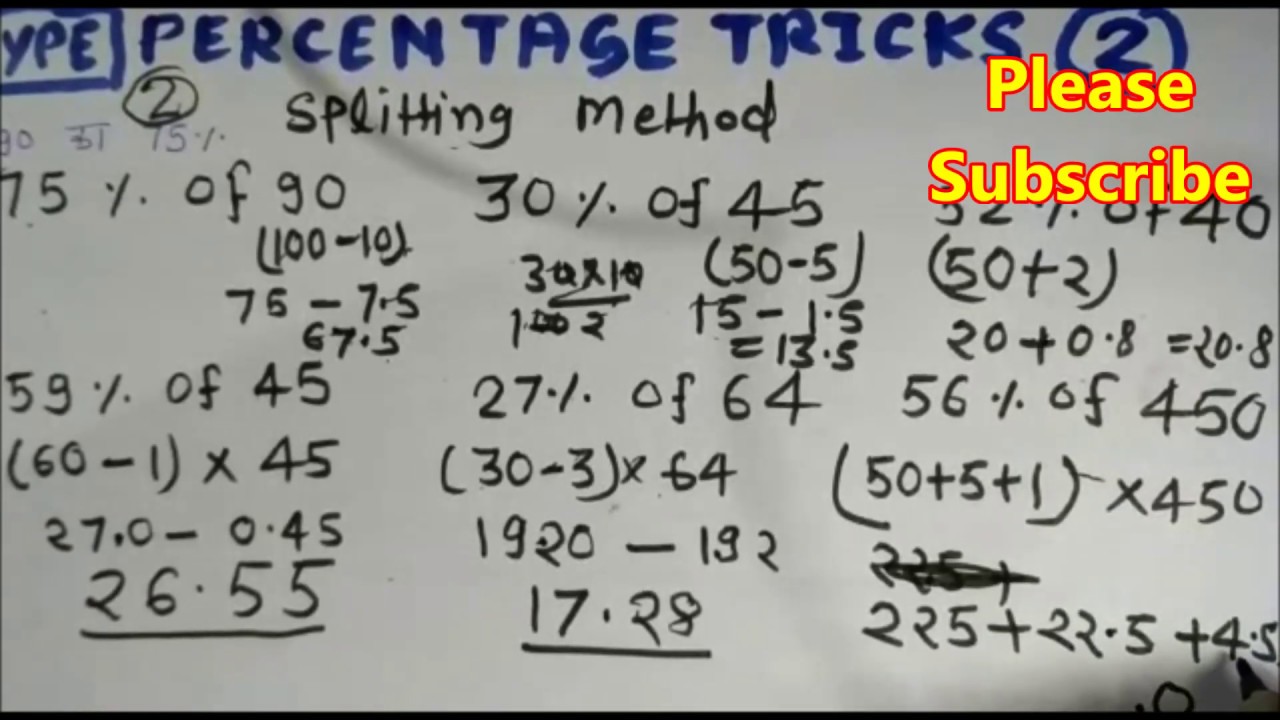 YPE PERCENTAGE TRICKS ②
Please
Subscribe
② Splitting Method
90 का 75%
75 % of 90
(100-10)
75 - 7.5
67.5
30 % of 45
(50-5)
15 - 1.5
= 13.5
52 % of 40
(50+2)
20 + 0.8 = 20.8
59 % of 45
(60-1) × 45
27.0 - 0.45
26.55
27 % of 64
(30-3) × 64
1920 - 192
17.28
56 % of 450
(50+5+1) × 450
225 +
225 + 22.5 + 4.5
.0